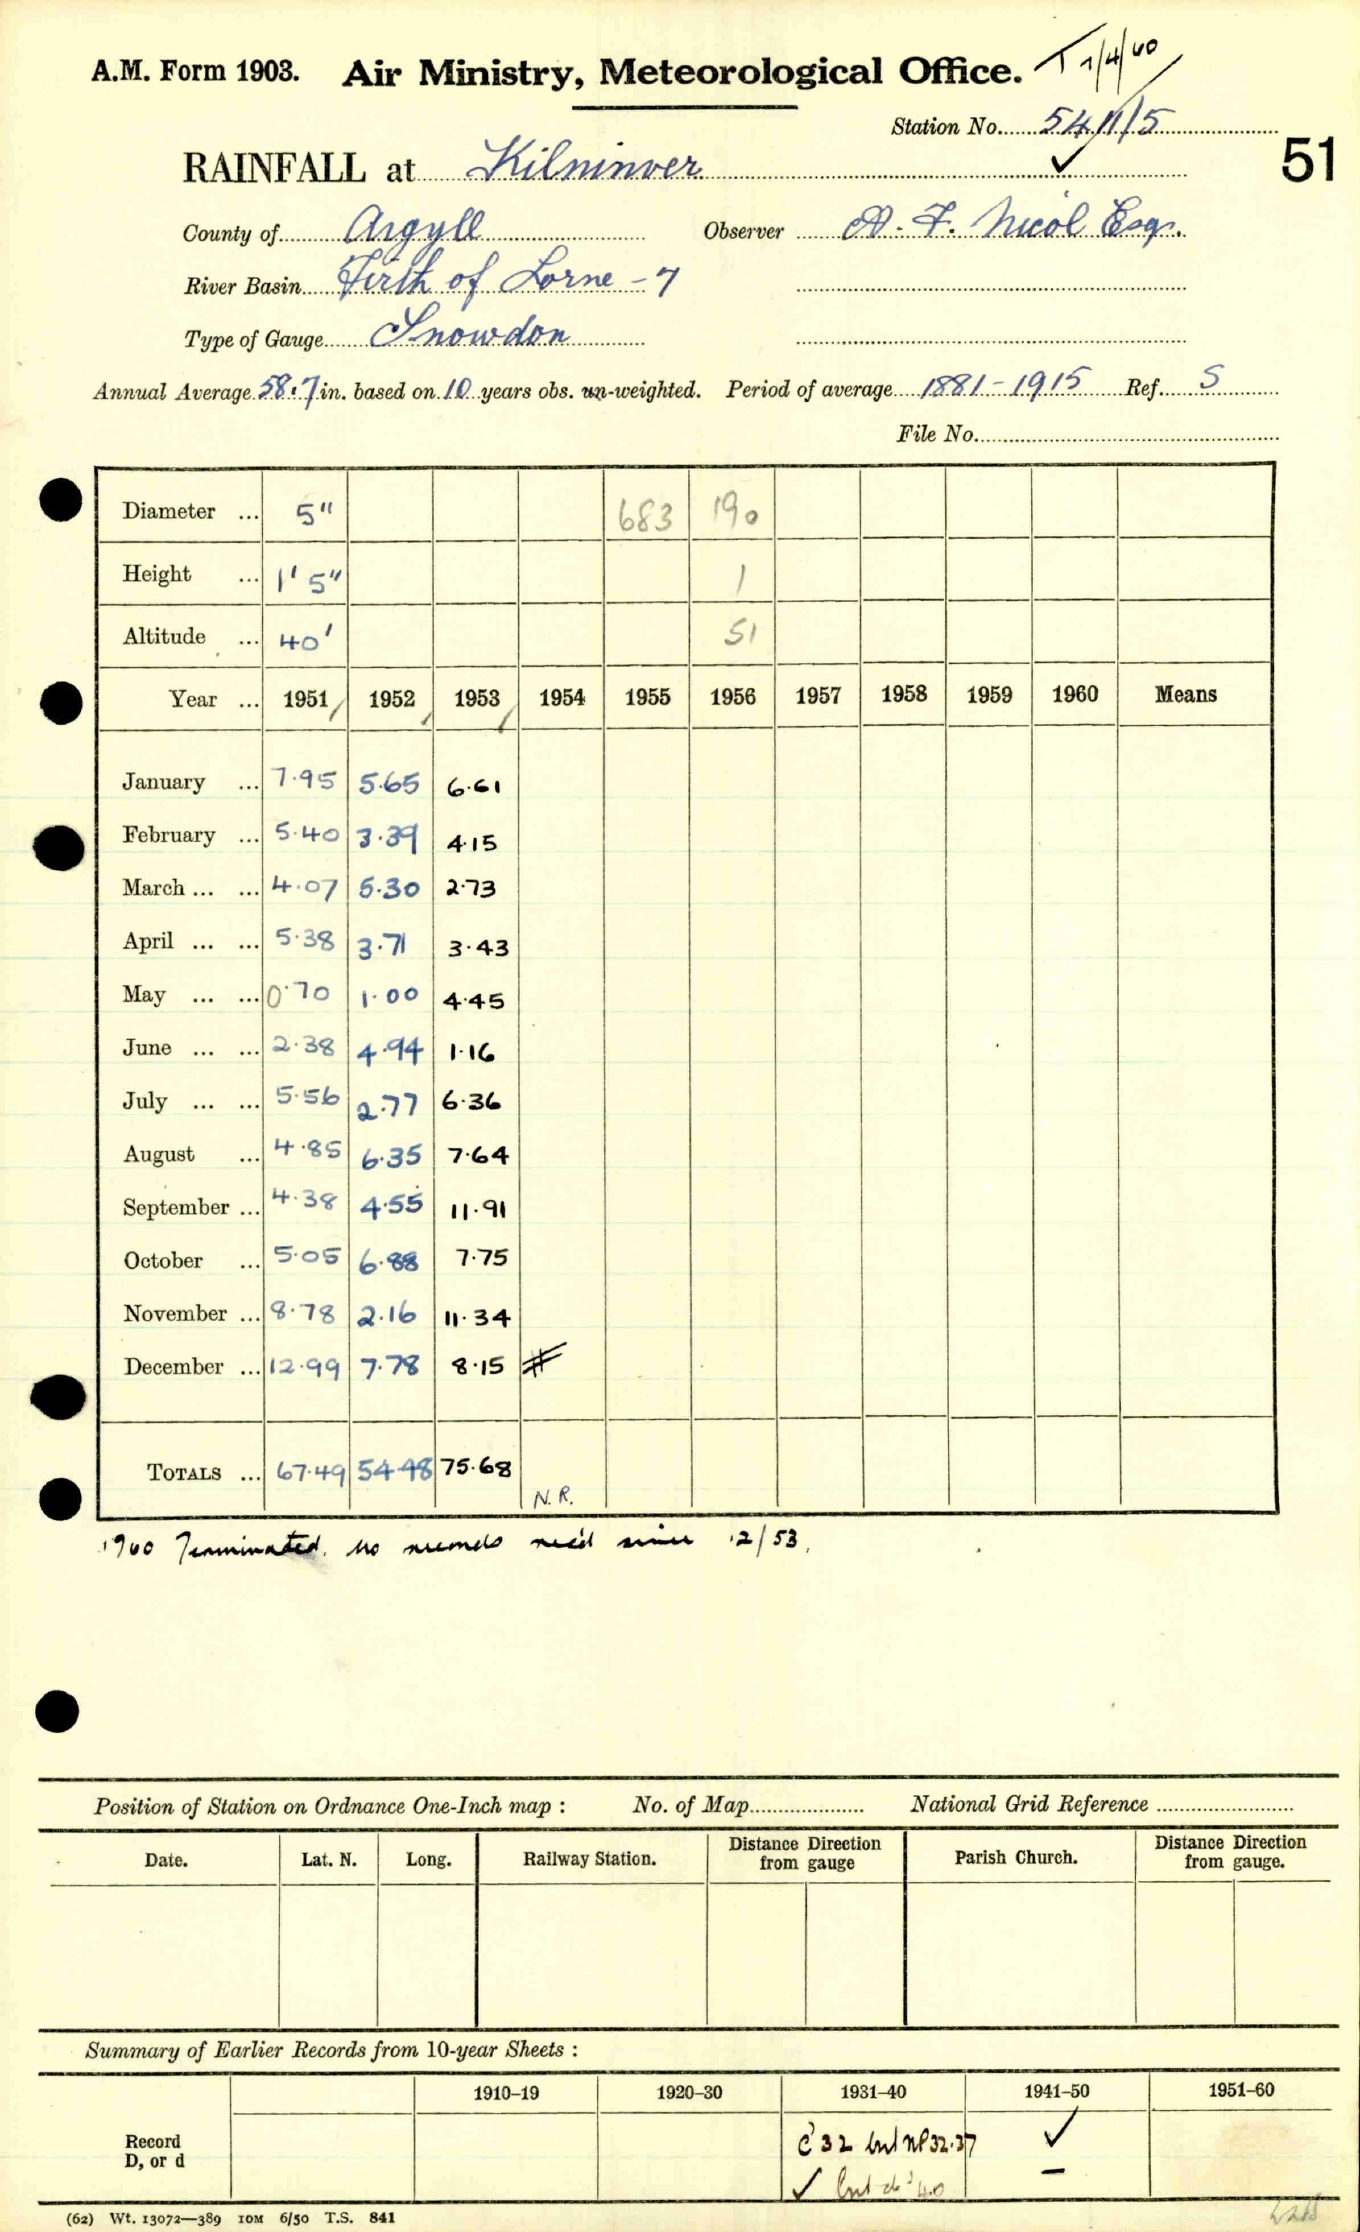 A.M. Form 1903. Air Ministry, Meteorological Office. T 1/4/60
Station No. 5411/5
51
RAINFALL at Kilninver
County of Argyll Observer A. F. Nicol Esq.
River Basin Firth of Lorne - 7
Type of Gauge Snowdon
Annual Average 58.7 in. based on 10 years obs. un-weighted. Period of average 1881-1915 Ref. S
File No.
Diameter ... 5" 683 190
Height ... 1' 5" 1
Altitude ... 40' 51
Year ... 1951 1952 1953 1954 1955 1956 1957 1958 1959 1960 Means
January ... 7.95 5.65 6.61
February ... 5.40 3.39 4.15
March ... ... 4.07 5.30 2.73
April ... ... 5.38 3.71 3.43
May ... ... 0.70 1.00 4.45
June ... ... 2.38 4.94 1.16
July ... ... 5.56 2.77 6.36
August ... 4.85 6.35 7.64
September ... 4.38 4.55 11.91
October ... 5.05 6.88 7.75
November ... 8.78 2.16 11.34
December ... 12.99 7.78 8.15
TOTALS ... 67.49 54.48 75.68 N.R.
1960 Terminated. No records rec'd since 12/53.
Position of Station on Ordnance One-Inch map : No. of Map National Grid Reference
Date. Lat. N. Long. Railway Station. Distance from gauge Direction Parish Church. Distance from gauge. Direction
Summary of Earlier Records from 10-year Sheets :
1910-19 1920-30 1931-40 1941-50 1951-60
Record C'32 NP32.37 ✓
D, or d ✓ '40 –
(62) Wt. 13072—389 10M 6/50 T.S. 841